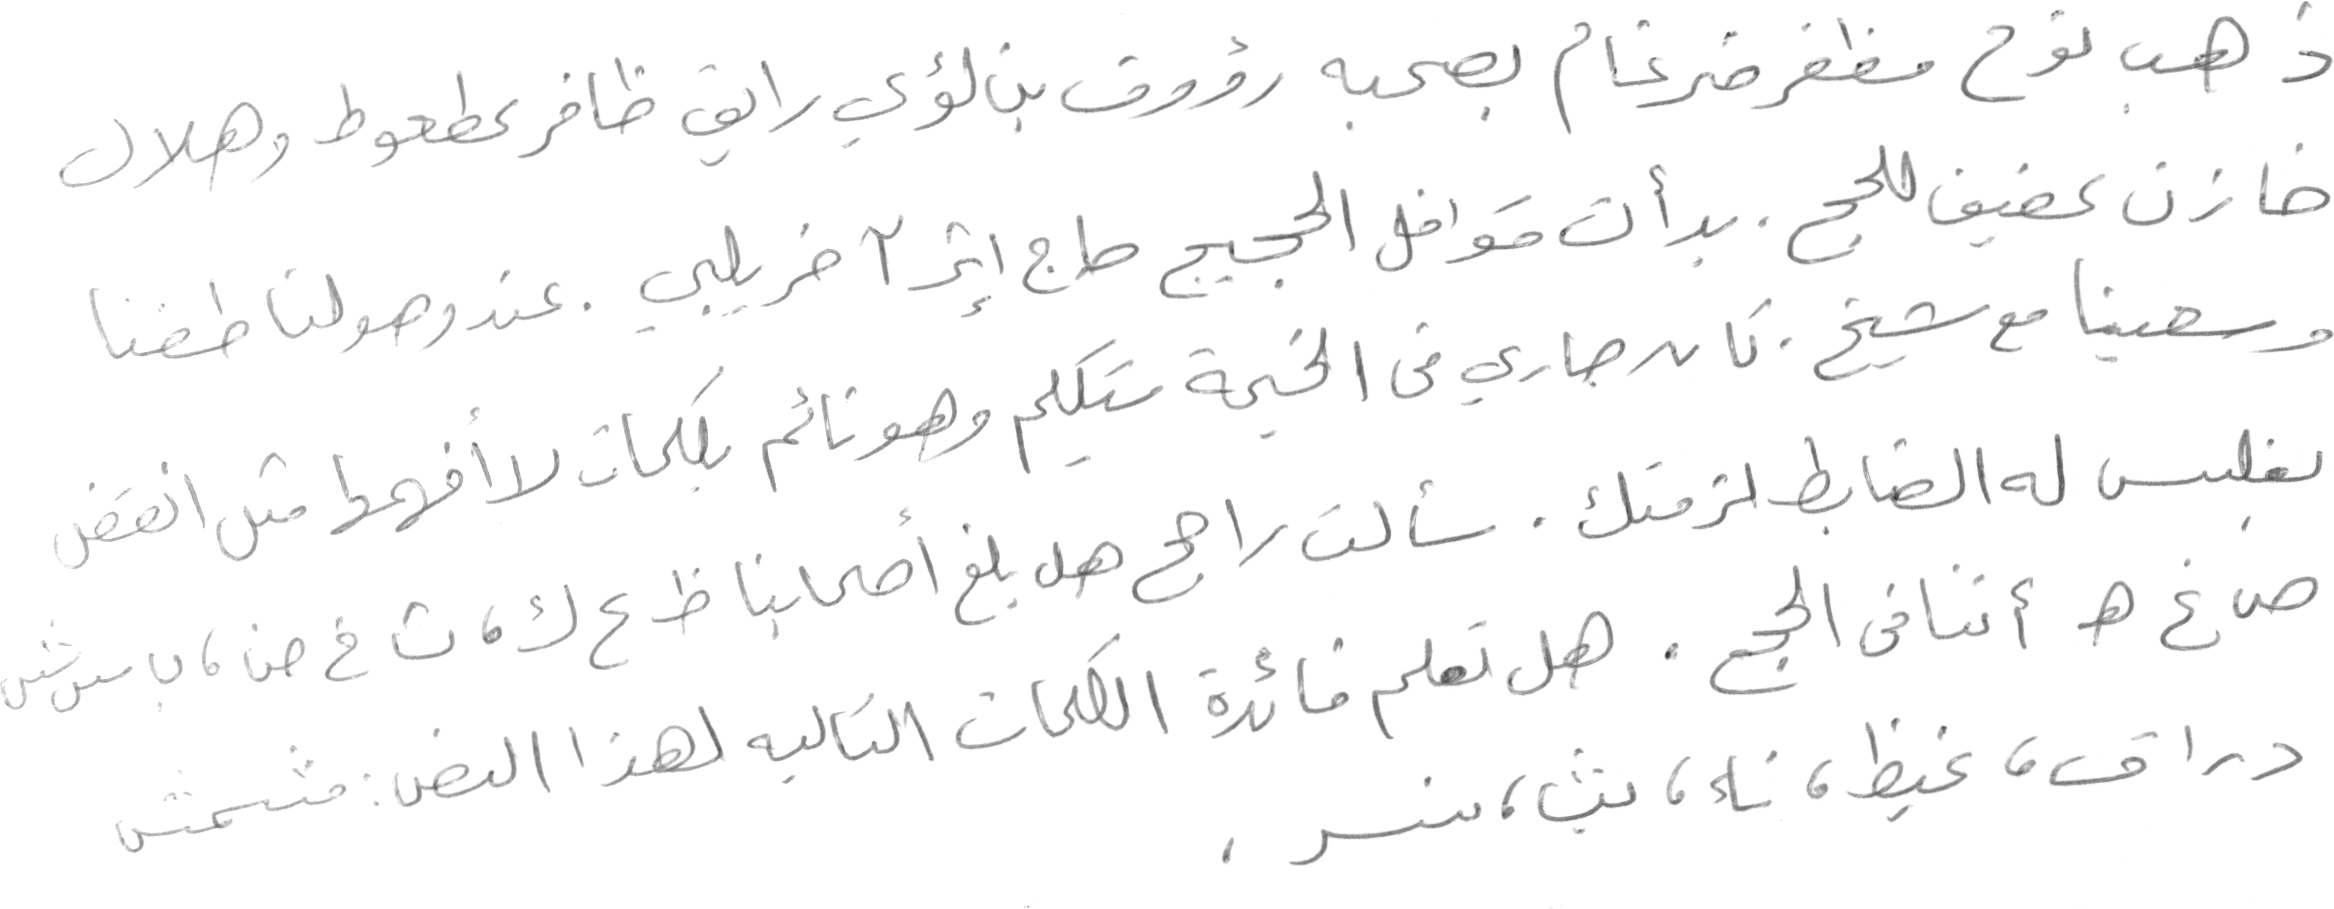 ذهب نوح مظفر ضرغام بصحبه رؤوف بن لؤي رايق ظافر عطعوط وهلال
خازن عفيف للحج . بدأت قوافل الحجيج حاج إثر آخر يلبي . عند وصولنا طفنا
وسعينا مع شيخ . كان جاري في الخيمة يتكلم وهو نائم بكلمات لا أفهمها مثل انقض
بغلس له الضابط لزمتك . سألت راجح هل بلغ أصحابنا ظ ع ك ، ث خ ض ، ب س ش
ص غ ه أننا في الحج . هل تعلم فائدة الكلمات التاليه لهذا النص : مشمش
دراق ، غيظ ، ناء ، بث ، نسر ،